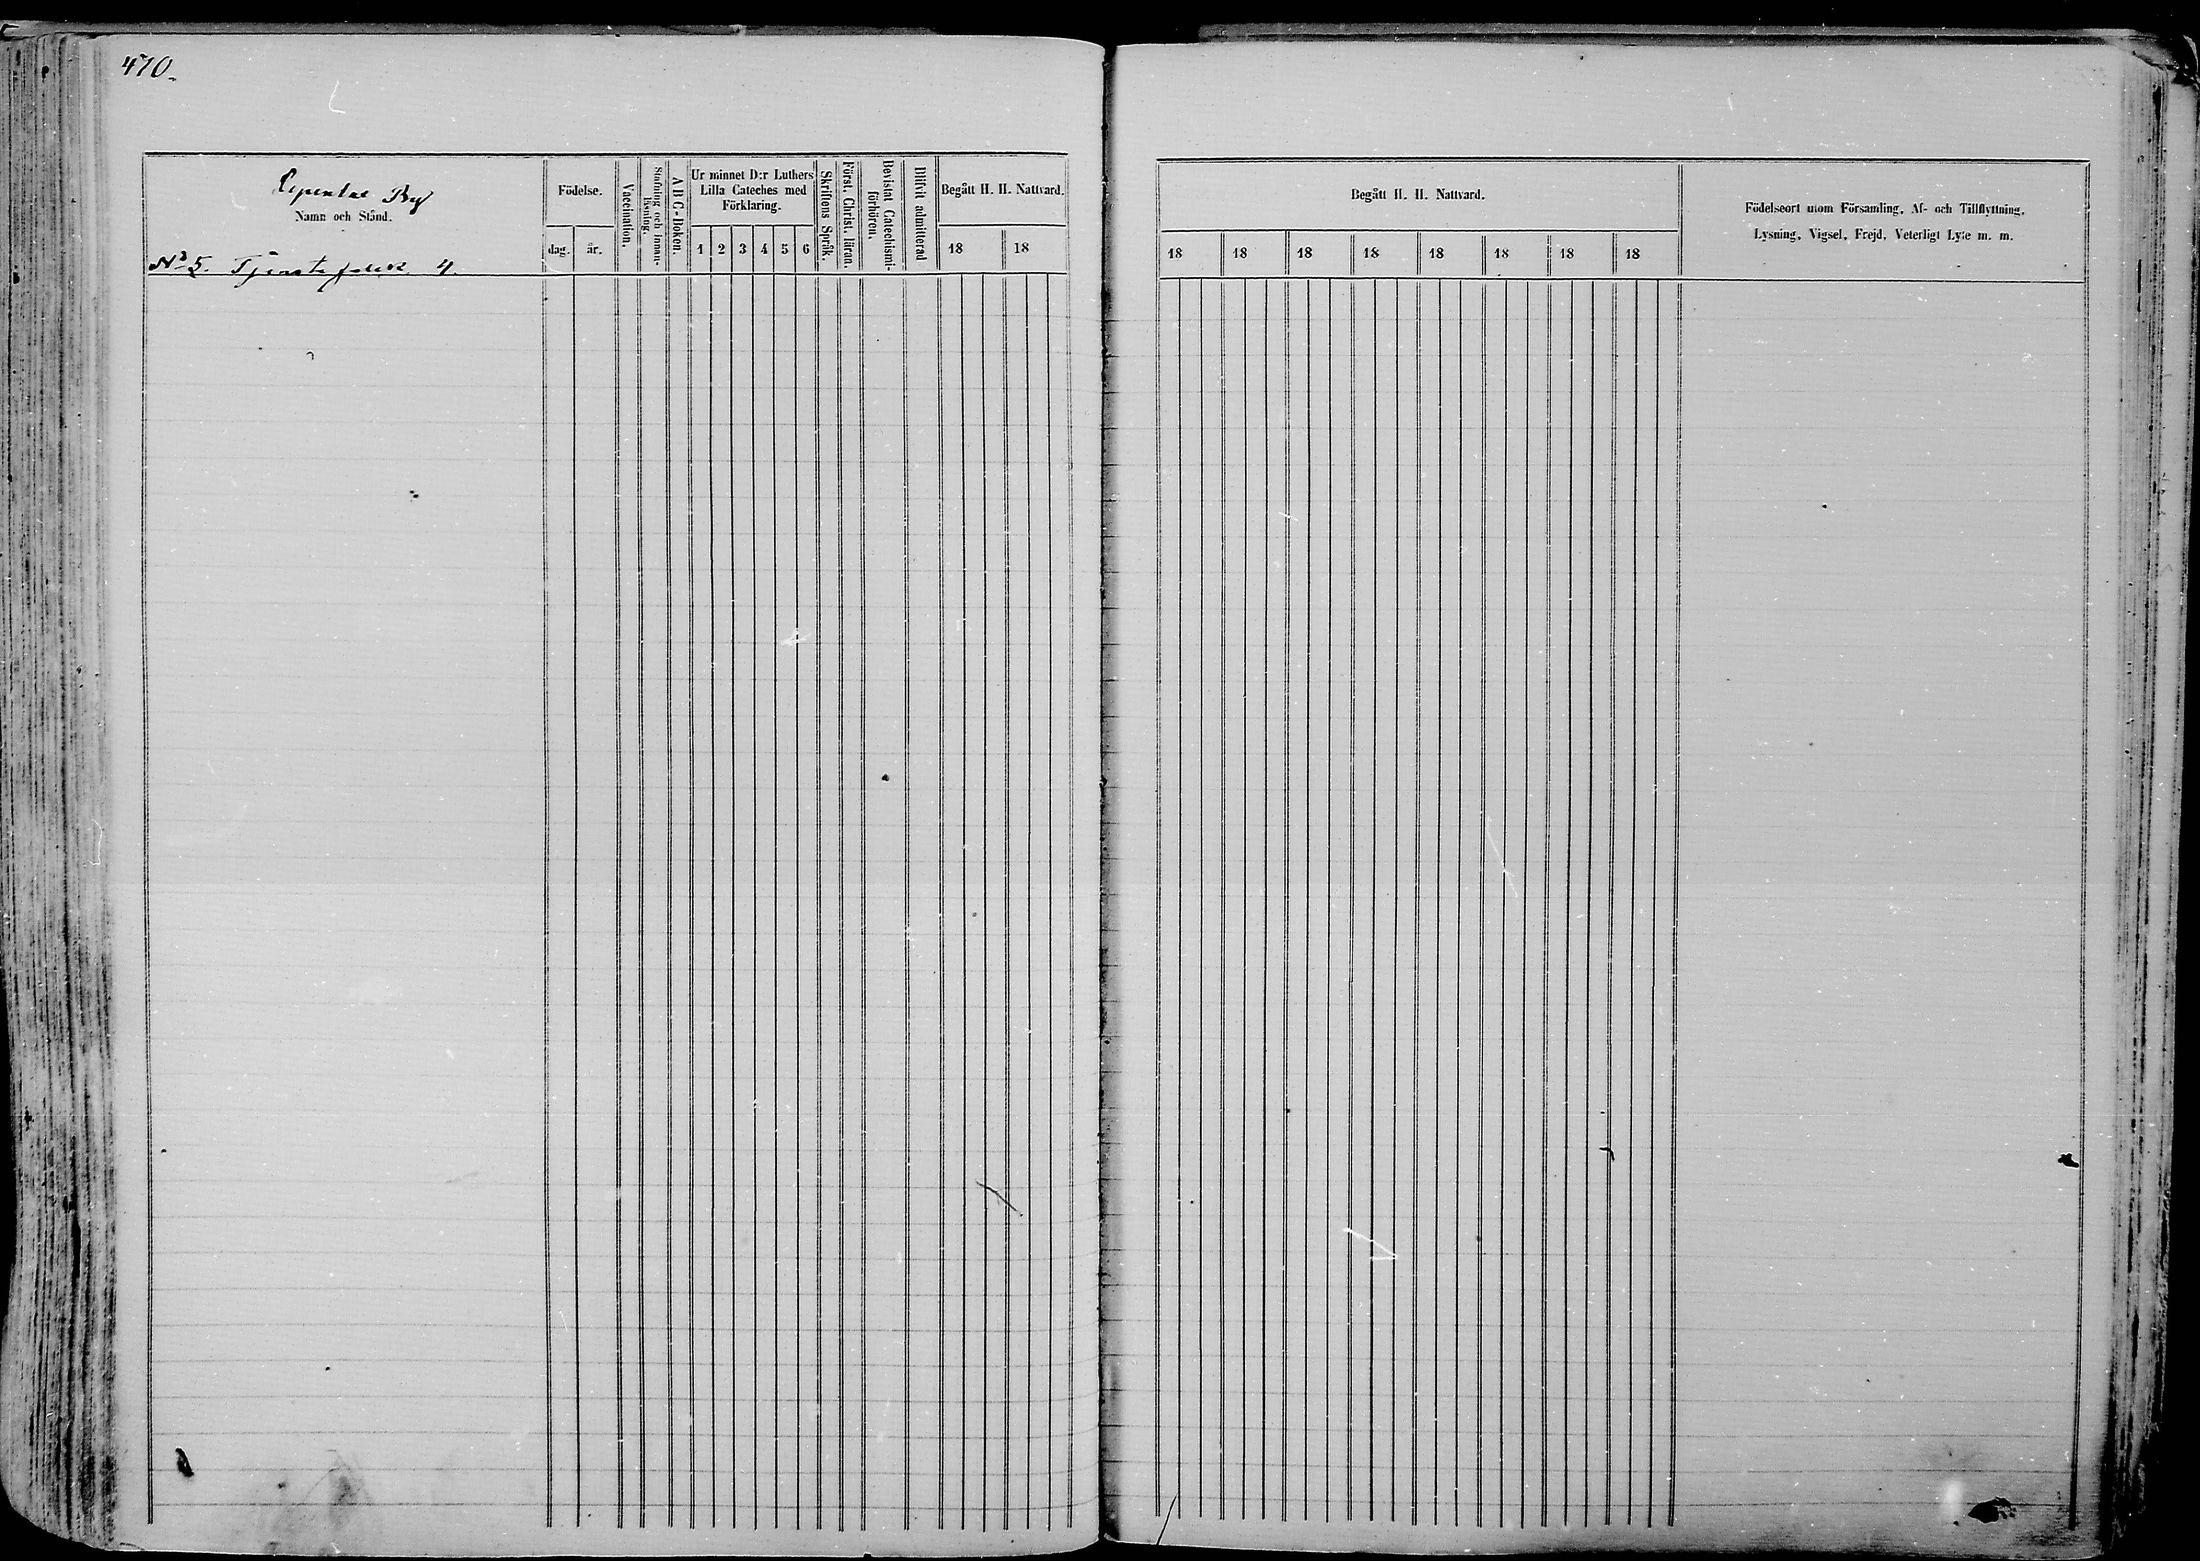 470.
By
Namn och Stånd.
No 5. Tjenstefolk 4.
Födelse.
dag.
år.
Vaccination.
Stafning och innan-
läsning.
A B C-Boken.
Ur minnet D:r Luthers
Lilla Cateches med
Förklaring.
1 2 3 4 5 6
Skriftens Språk.
Först. Christ. läran.
Bevistat Catechismi-
förhören.
Blifvit admitterad
Begått H. H. Nattvard.
18 18
Begått H. H. Nattvard.
18 18 18 18 18 18 18 18
Födelseort utom Församling, Af- och Tillflyttning,
Lysning, Vigsel, Frejd, Veterligt Lyte m. m.